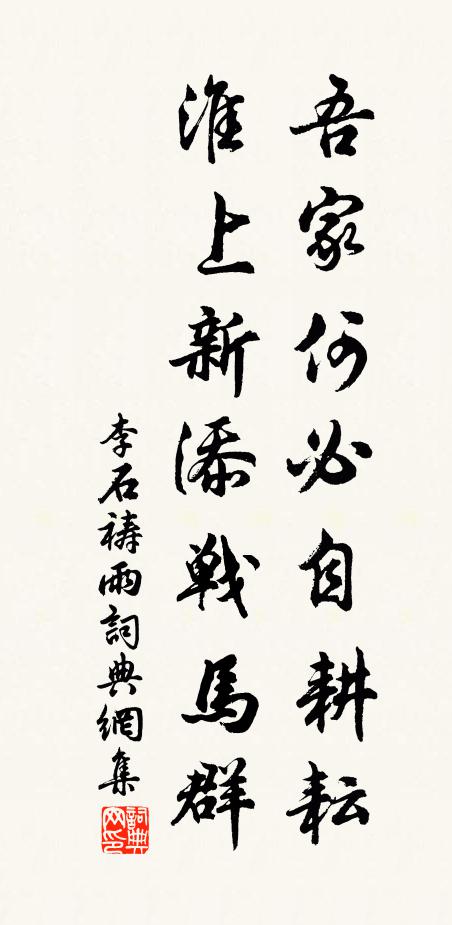 吾家何必自耕耘
淮上新添戰馬群
李石禱雨詞典網集
詞典网印